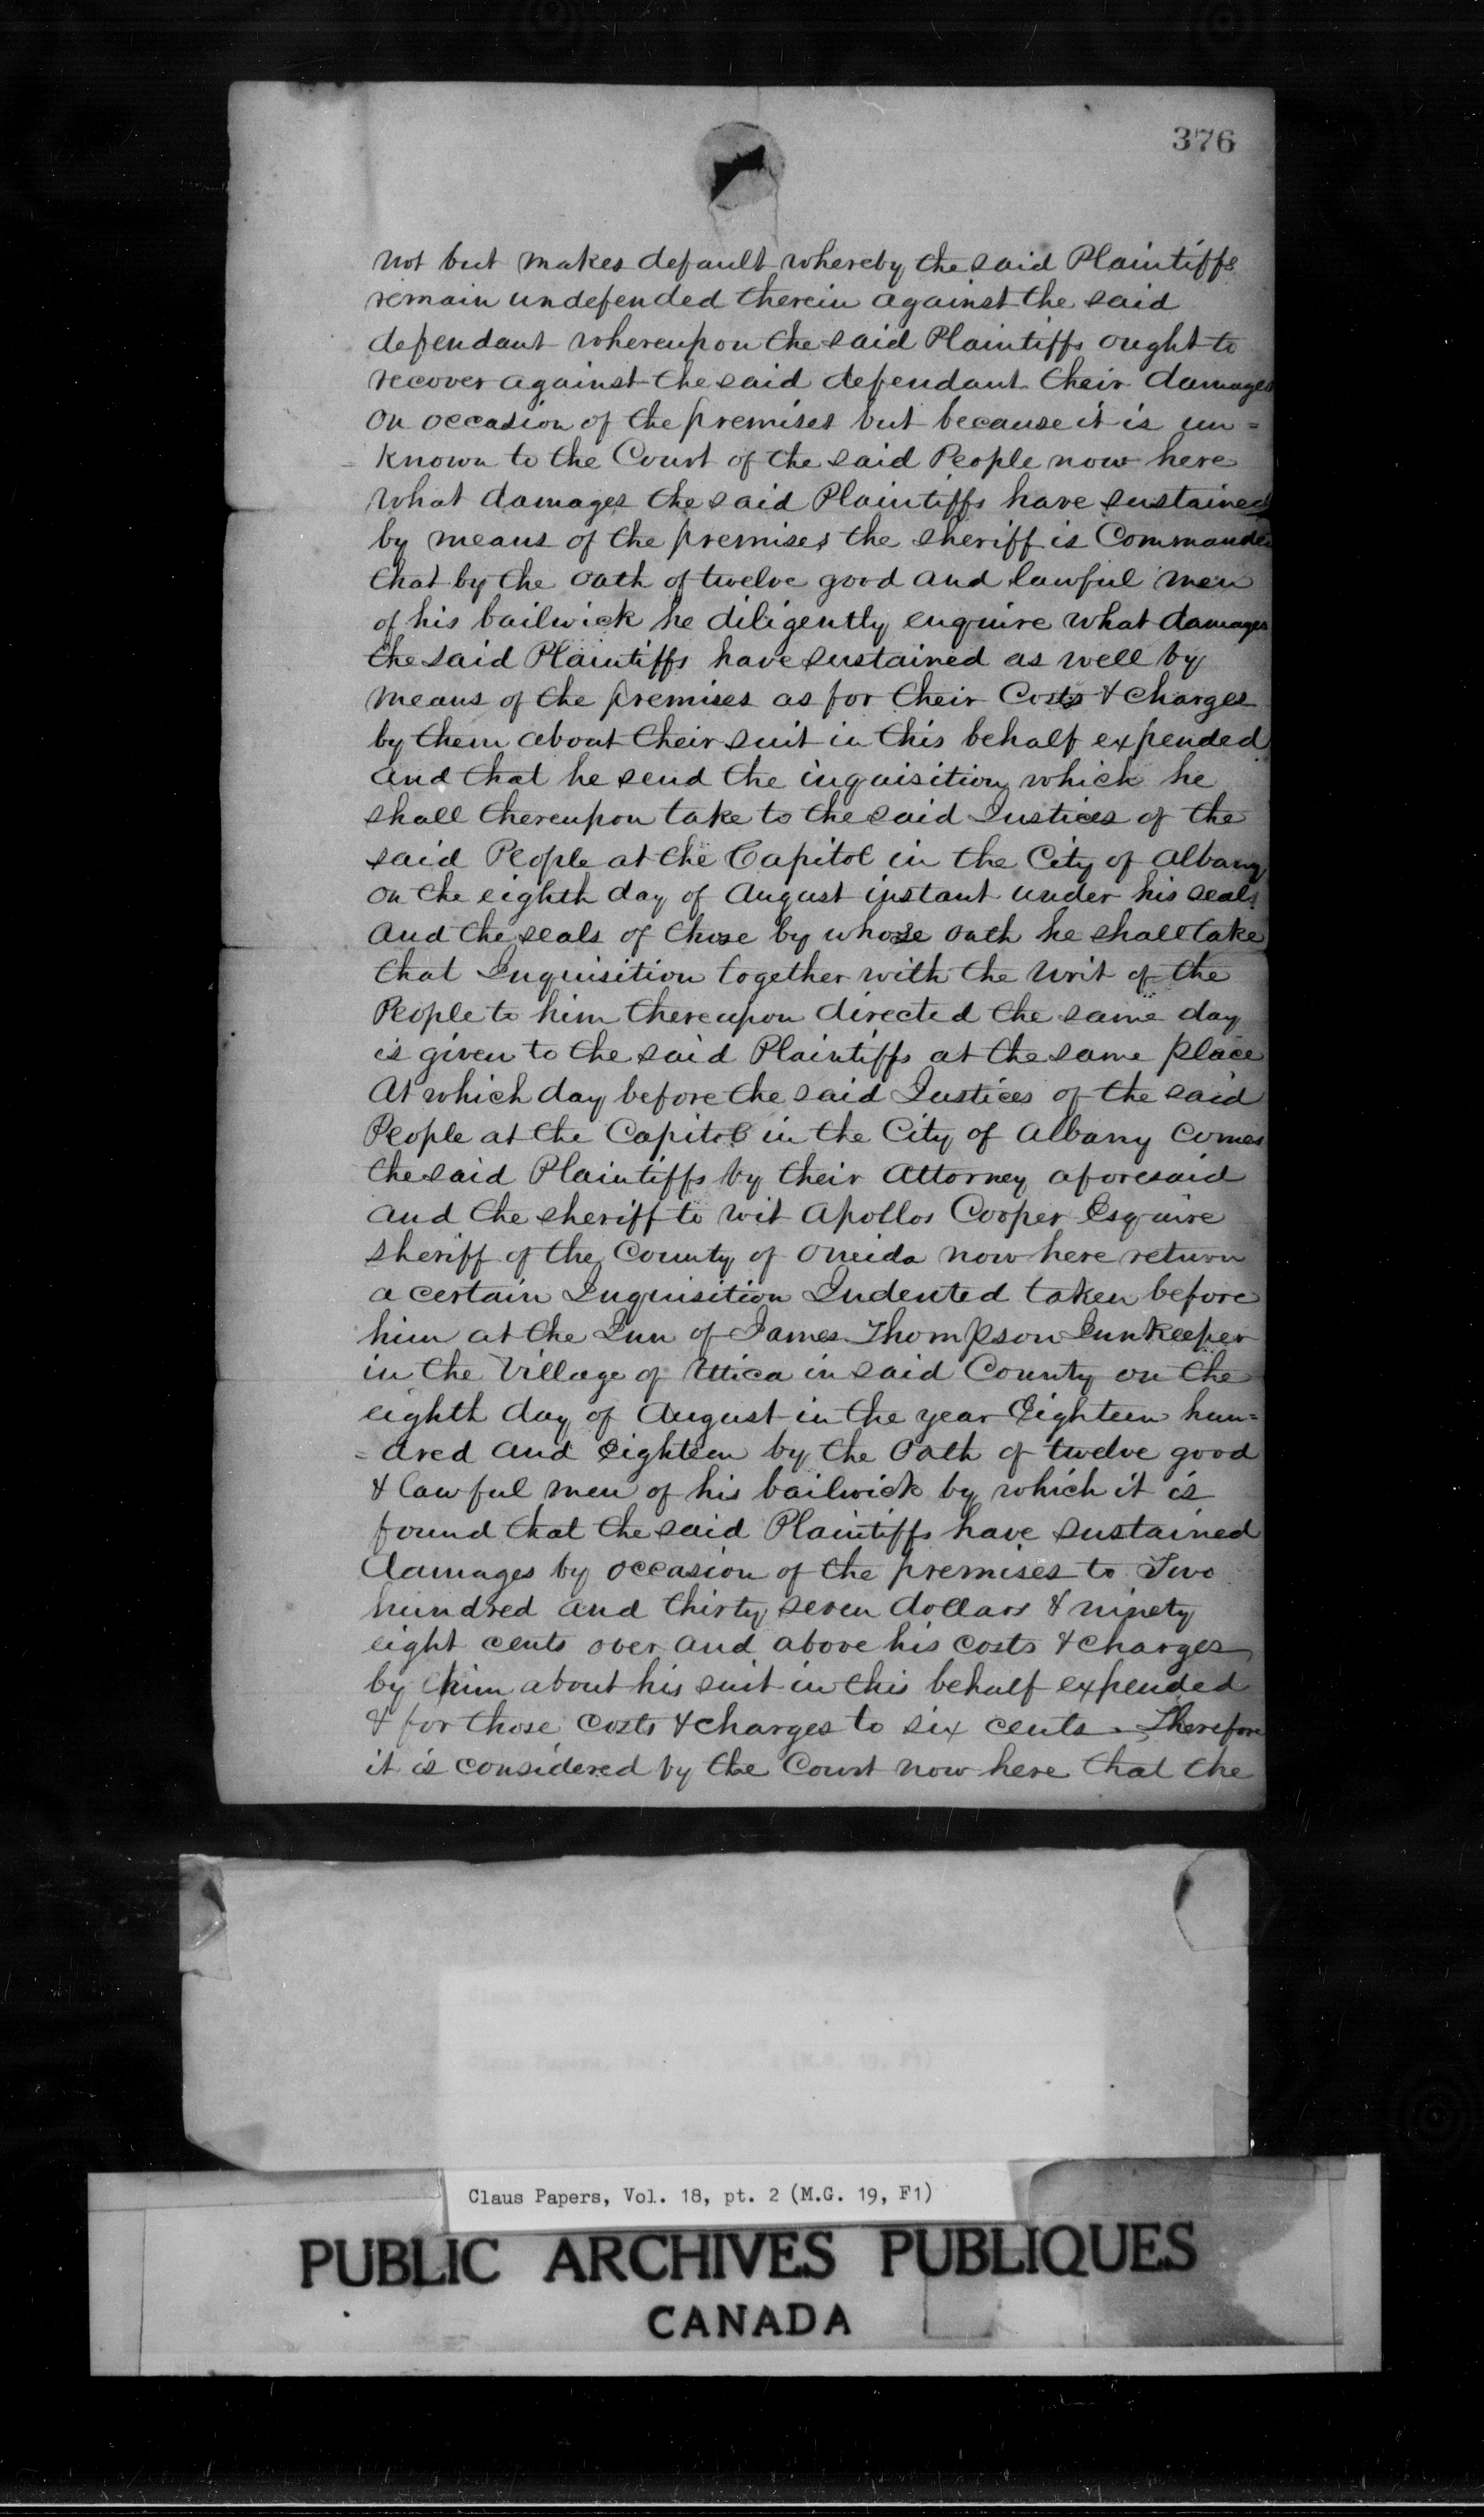 376
not but makes default whereby the said Plaintiffs
remain undefended therein against the said
defendant whereupon the said Plaintiffs ought to
recover against the said defendant their damages
on occasion of the premises but because it is un=
=known to the Court of the said People now here
what damages the said Plaintiffs have sustained
by means of the premises the sheriff is Commanded
that by the oath of twelve good and lawful men
of his bailwick he diligently enquire what damages
the said Plaintiffs have sustained as well by
means of the premises as for their Costs & charges
by them about their suit in this behalf expended
and that he send the inquisition which he
shall thereupon take to the said Justices of the
said People at the Capitol in the City of Albany
on the eighth day of August instant under his seals
and the seals of those by whose oath he shall take
that Inquisition together with the writ of the
People to him thereupon directed the same day
is given to the said Plaintiffs at the same place
At which day before the said Justices of the said
People at the Capitol in the City of Albany comes
the said Plaintiffs by their Attorney aforesaid
and the sheriff to wit Apollos Cooper Esquire
sheriff of the County of Oneida now here return
a certain Inquisition Indented taken before
him at the Inn of James Thompson Innkeeper
in the Village of Utica in said County on the
eighth day of August in the year Eighteen hun=
=dred and Eighteen by the Oath of twelve good
& lawful men of his bailwick by which it is
found that the said Plaintiffs have sustained
damages by occasion of the premises to Two
hundred and thirty seven dollars & ninety
eight cents over and above his costs & charges
by him about his suit in this behalf expended
& for those costs & charges to six cents. Therefore
it is considered by the Court now here that the
Claus Papers, Vol. 18, pt. 2 (M.G. 19, F1)
PUBLIC ARCHIVES PUBLIQUES
CANADA